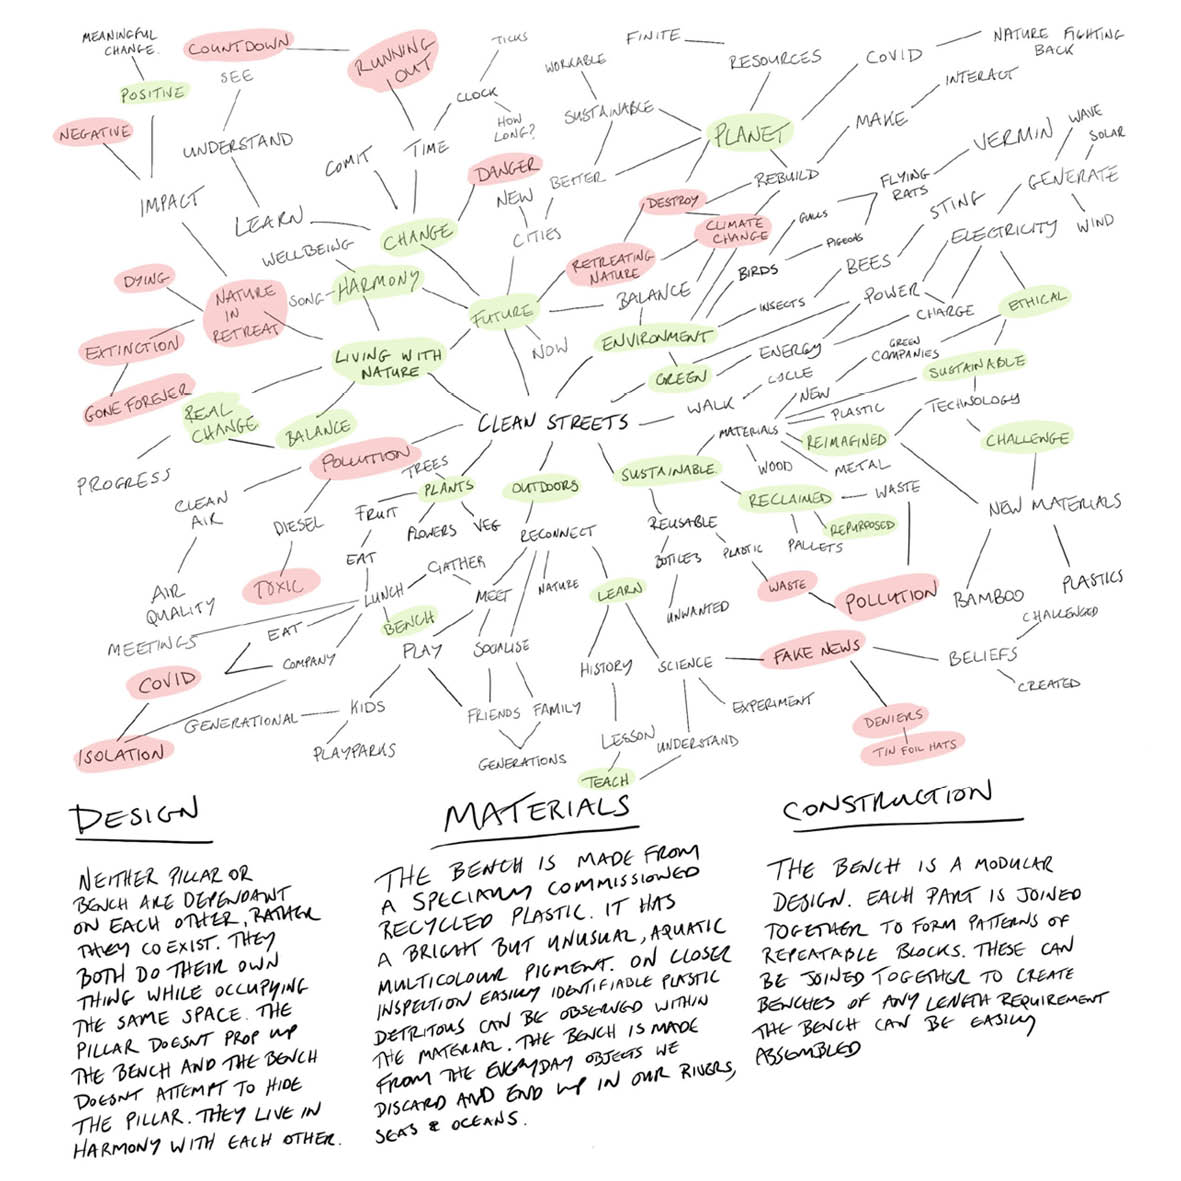 MEANINGFUL
CHANGE.
COUNTDOWN
RUNNING
OUT
TICKS
FINITE
RESOURCES
COVID
NATURE FIGHTING
BACK
SEE
POSITIVE
CLOCK
WORKABLE
SUSTAINABLE
INTERACT
NEGATIVE
UNDERSTAND
HOW
LONG?
TIME
COMIT
PLANET
MAKE
VERMIN
WAVE
SOLAR
IMPACT
LEARN
DANGER
NEW
BETTER
REBUILD
FLYING
RATS
GENERATE
DESTROY
STING
WIND
WELLBEING
CHANGE
CITIES
CLIMATE
CHANGE
GULLS
PIGEONS
ELECTRICITY
DYING
NATURE
IN
RETREAT
SONG
HARMONY
RETREATING
NATURE
BALANCE
BIRDS
BEES
INSECTS
POWER
ETHICAL
CHARGE
FUTURE
NOW
ENVIRONMENT
EXTINCTION
LIVING WITH
NATURE
GREEN
ENERGY
GREEN
COMPANIES
SUSTAINABLE
GONE FOREVER
REAL
CHANGE
BALANCE
CLEAN STREETS
WALK
CYCLE
NEW
PLASTIC
TECHNOLOGY
MATERIALS
REIMAGINED
CHALLENGE
PROGRESS
POLLUTION
TREES
PLANTS
OUTDOORS
SUSTAINABLE
WOOD
METAL
CLEAN
AIR
DIESEL
FRUIT
FLOWERS
VEG
RECONNECT
REUSABLE
RECLAIMED
WASTE
REPURPOSED
PALLETS
NEW MATERIALS
AIR
QUALITY
TOXIC
EAT
GATHER
LUNCH
MEET
NATURE
LEARN
BOTTLES
PLASTIC
UNWANTED
WASTE
POLLUTION
BAMBOO
PLASTICS
MEETINGS
EAT
BENCH
COMPANY
PLAY
SOCIALISE
HISTORY
SCIENCE
FAKE NEWS
BELIEFS
CHALLENGED
CREATED
COVID
ISOLATION
GENERATIONAL
KIDS
PLAYPARKS
FRIENDS
FAMILY
GENERATIONS
LESSON
UNDERSTAND
EXPERIMENT
TEACH
DENIERS
TIN FOIL HATS
DESIGN
NEITHER PILLAR OR
BENCH ARE DEPENDANT
ON EACH OTHER, RATHER
THEY CO EXIST. THEY
BOTH DO THEIR OWN
THING WHILE OCCUPYING
THE SAME SPACE. THE
PILLAR DOESNT PROP UP
THE BENCH AND THE BENCH
DOESNT ATTEMPT TO HIDE
THE PILLAR. THEY LIVE IN
HARMONY WITH EACH OTHER.
MATERIALS
THE BENCH IS MADE FROM
A SPECIALLY COMMISSIONED
RECYCLED PLASTIC. IT HAS
A BRIGHT BUT UNUSUAL, AQUATIC
MULTICOLOUR PIGMENT. ON CLOSER
INSPECTION EASILY IDENTIFIABLE PLASTIC
DETRITOUS CAN BE OBSERVED WITHIN
THE MATERIAL. THE BENCH IS MADE
FROM THE EVERYDAY OBJECTS WE
DISCARD AND END UP IN OUR RIVERS,
SEAS & OCEANS.
CONSTRUCTION
THE BENCH IS A MODULAR
DESIGN. EACH PART IS JOINED
TOGETHER TO FORM PATTERNS OF
REPEATABLE BLOCKS. THESE CAN
BE JOINED TOGETHER TO CREATE
BENCHES OF ANY LENGTH REQUIREMENT
THE BENCH CAN BE EASILY
ASSEMBLED